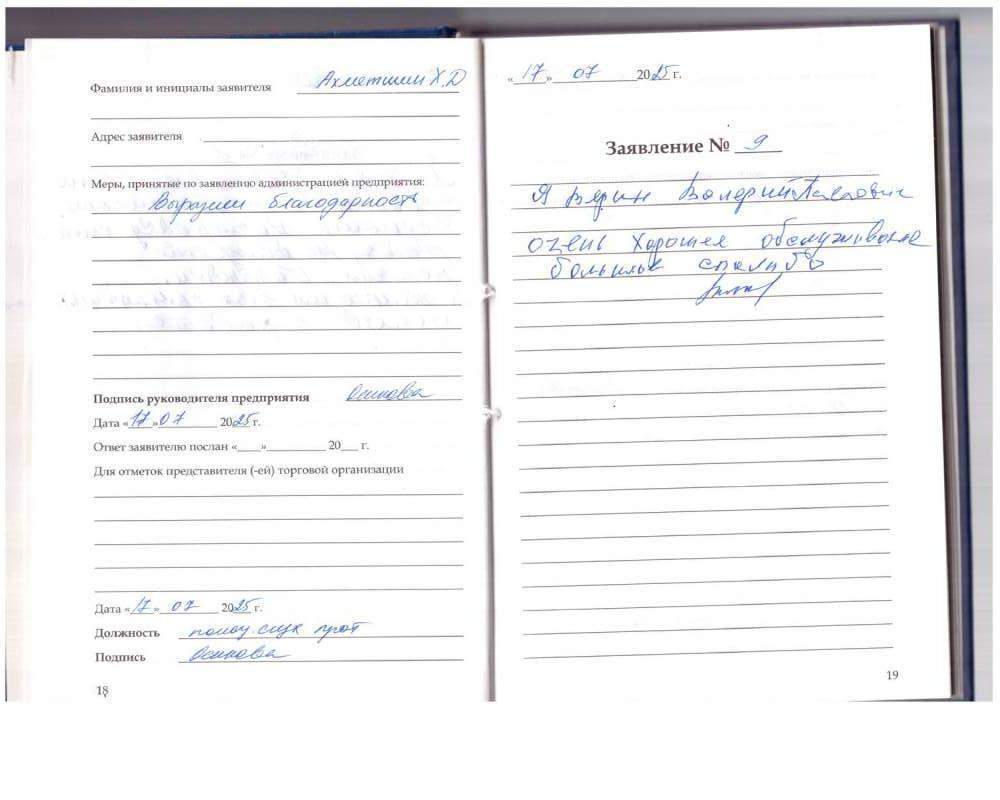 Фамилия и инициалы заявителя Ахметшин Х.Д
Адрес заявителя
Меры, принятые по заявлению администрацией предприятия:
Выразили благодарность
Подпись руководителя предприятия Осипова
Дата «17» 07 2025 г.
Ответ заявителю послан «___»__________ 20___ г.
Для отметок представителя (-ей) торговой организации
Дата «17» 07 2025 г.
Должность
Подпись Осипова
18
«17» 07 2025 г.
Заявление № 9
Я Валерий Павлович
очень хорошея обслуживание
спасибо
19